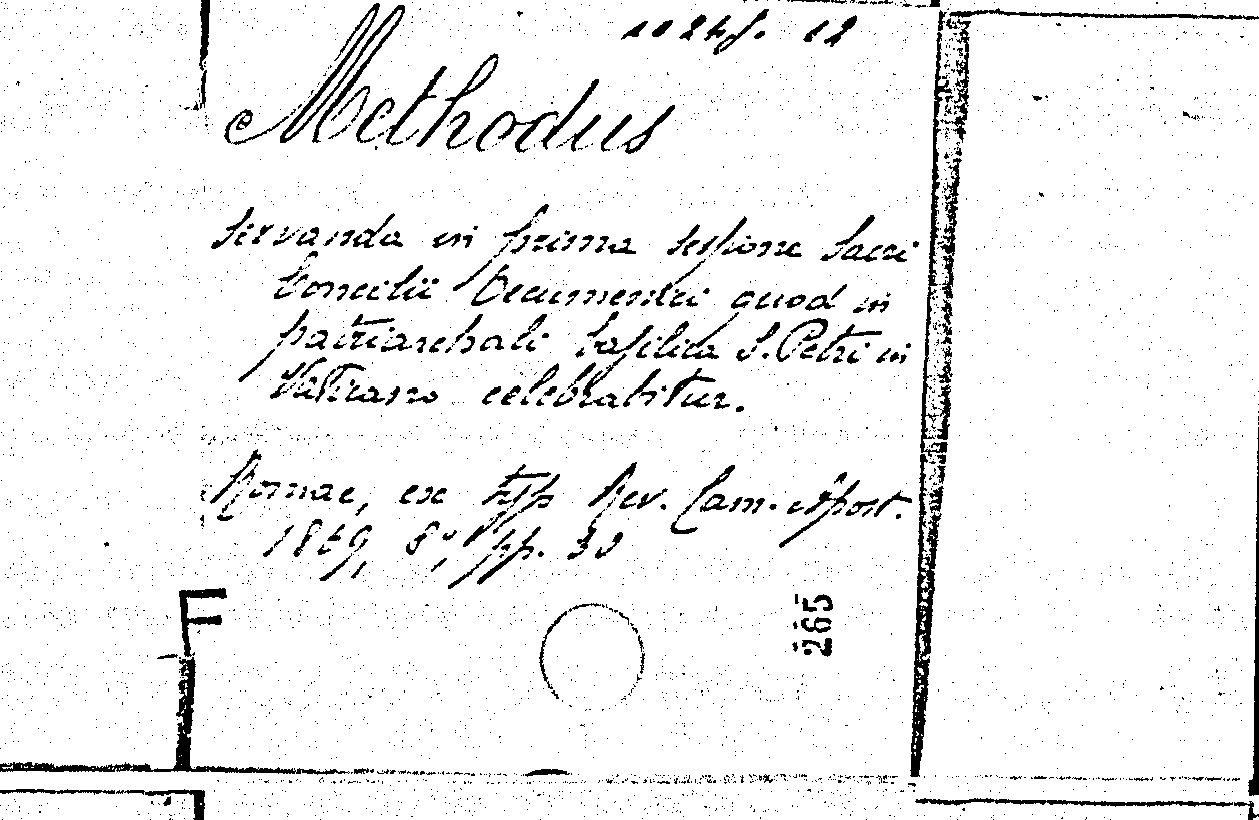 1024f. 12
Methodus
servanda in prima sessione Sacri
Concilii Oecumenici quod in
patriarchali basilica S. Petri in
Vaticano celebrabitur.
Romae, ex typ Rev. Cam. Apost.
1869, 8°, pp. 30
265
F